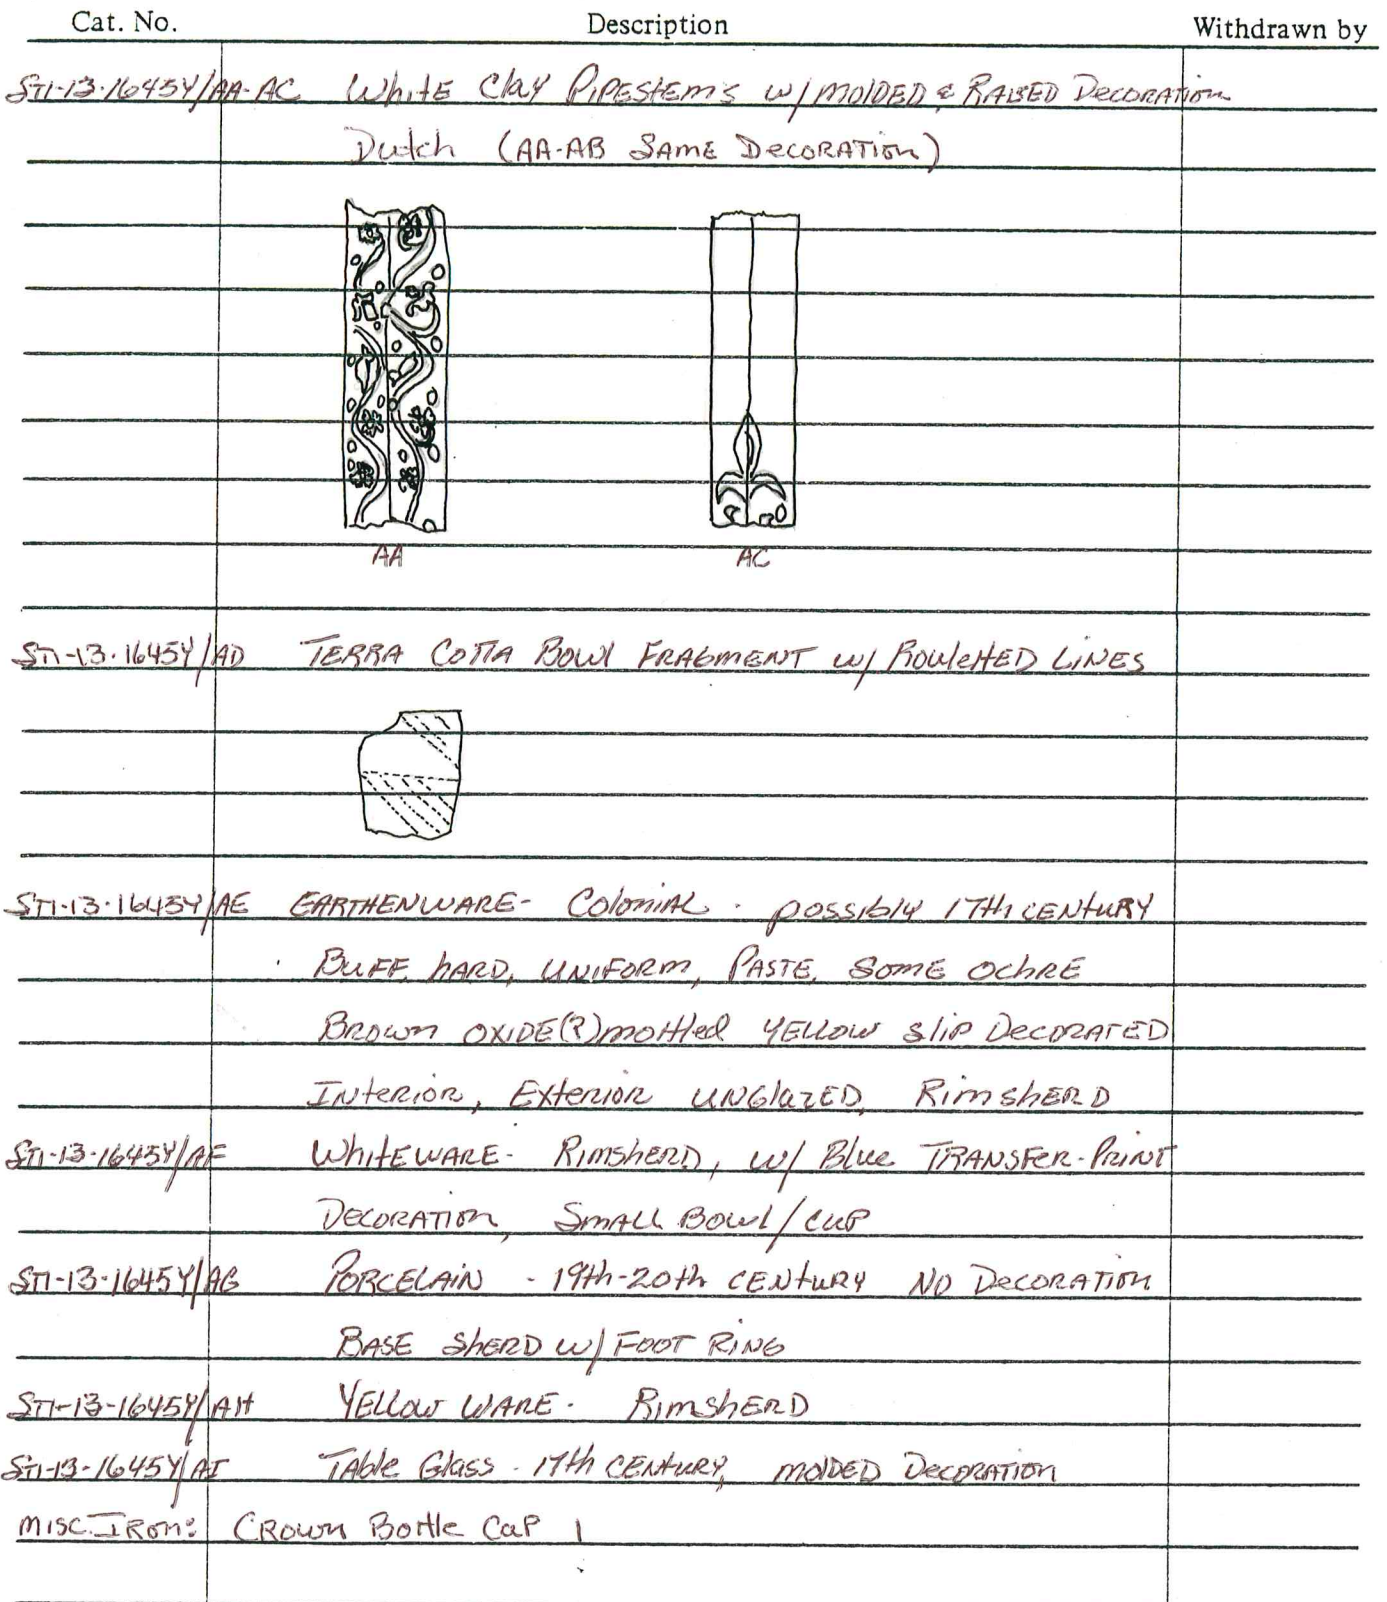 Cat. No. Description Withdrawn by
ST1-13-1645Y/AA-AC White Clay Pipestems w/ molded & Raised Decoration
Dutch (AA-AB Same Decoration)
AA AC
ST1-13-1645Y/AD Terra Cotta Bowl Fragment w/ Rouletted Lines
ST1-13-1645Y/AE Earthenware- Colonial - possibly 17th century
Buff, hard, uniform, Paste, Some Ochre
Brown oxide(?) mottled yellow slip Decorated
Interior, Exterior unglazed, Rimsherd
ST1-13-1645Y/AF Whiteware- Rimsherd, w/ Blue Transfer-Print
Decoration, Small Bowl/cup
ST1-13-1645Y/AG Porcelain - 19th-20th century No Decoration
Base sherd w/ Foot Ring
ST1-13-1645Y/AH Yellow Ware- Rimsherd
ST1-13-1645Y/AI Table Glass - 17th century, molded Decoration
Misc. Iron: Crown Bottle Cap 1